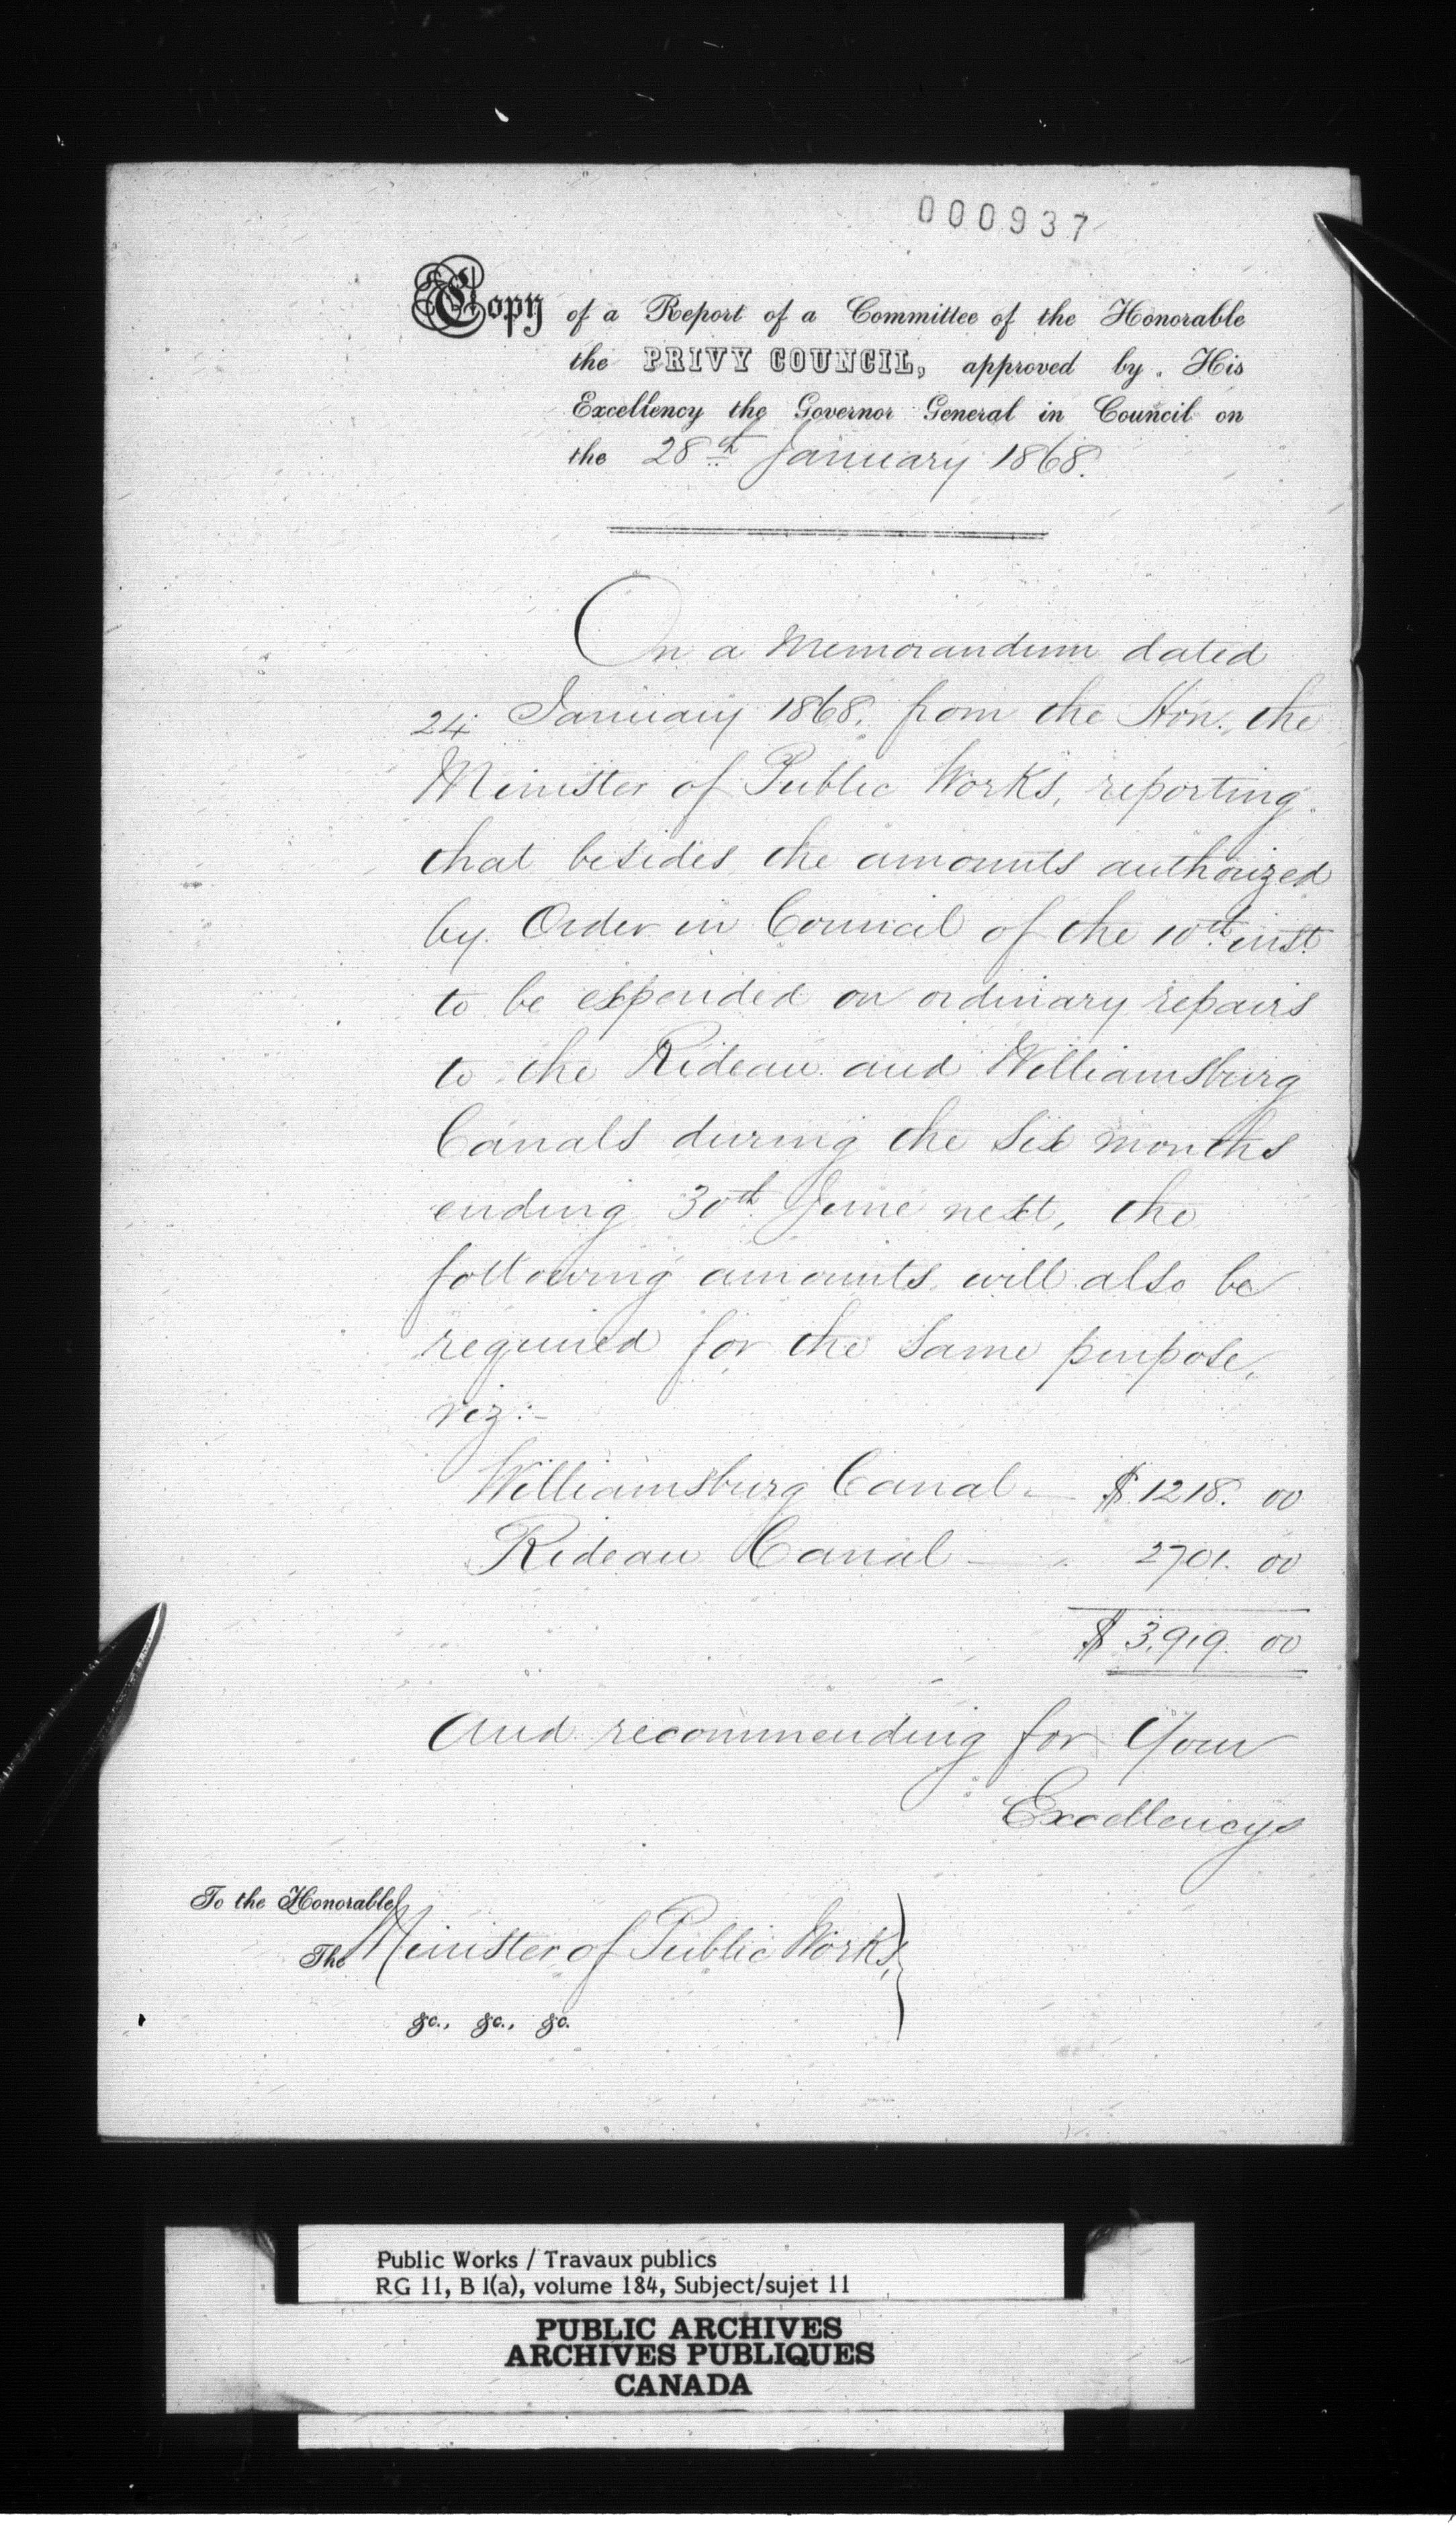 000937
Copy of a Report of a Committee of the Honorable
the PRIVY COUNCIL, approved by His
Excellency the Governor General in Council on
the 28th January 1868.
On a Memorandum dated
24 January 1868. from the Hon. the
Minister of Public Works, reporting
that besides the amounts authorized
by Order in Council of the 10th inst
to be expended on ordinary repairs
to the Rideau and Williamsburg
Canals during the Six months
ending 30th June next, the
following amounts will also be
required for the Same purpose,
viz:-
Williamsburg Canal — $1218. 00
Rideau Canal — 2701. 00
$ 3,919. 00
And recommending for Your
Excellencys
To the Honorable
The Minister of Public Works,
&c., &c., &c.
Public Works / Travaux publics
RG 11, B 1(a), volume 184, Subject/sujet 11
PUBLIC ARCHIVES
ARCHIVES PUBLIQUES
CANADA